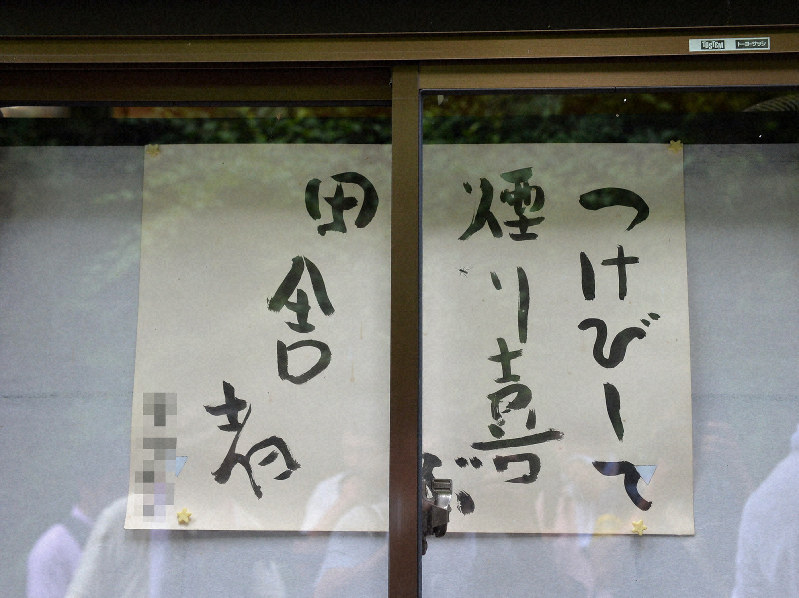 つけびーして
煙り喜ぶ
田舎者
TOSTEM トーヨーサッシ